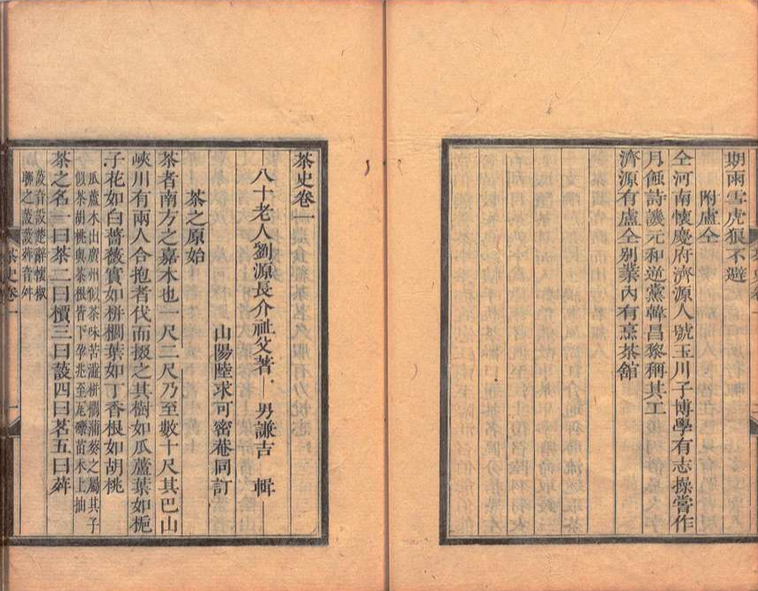 期雨雪虎狼不避
附盧仝
仝河南懷慶府濟源人號玉川子博學有志操嘗作
月蝕詩譏元和逆黨韓昌黎稱其工
濟源有盧仝別業內有烹茶館
茶史卷一
八十老人劉源長介祉父著 男謙吉 輯
山陽陸求可密菴同訂
茶之原始
茶者南方之嘉木也一尺二尺乃至數十尺其巴山
峽川有兩人合抱者伐而掇之其樹如瓜蘆葉如梔
子花如白薔薇實如栟櫚葉如丁香根如胡桃
瓜蘆木出廣州似茶味苦澁栟櫚蒲葵之屬其子
似茶胡桃與茶根皆下孕兆至瓦礫苗木上抽
茶之名一曰茶二曰檟三曰蔎四曰茗五曰荈
蔎音設楚辭懷椒
聊之蔎蔎荈音舛
茶史卷一
一